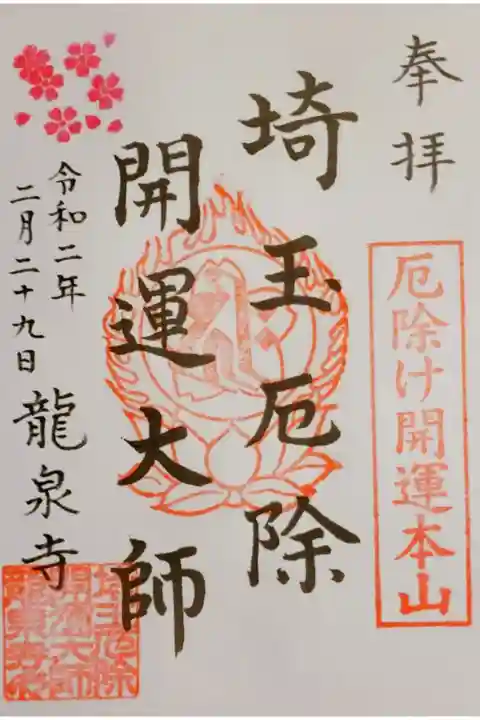 奉拝
厄除け開運本山
埼玉厄除
開運大師
令和二年
二月二十九日
龍泉寺
埼玉厄除
開運大師
龍泉寺